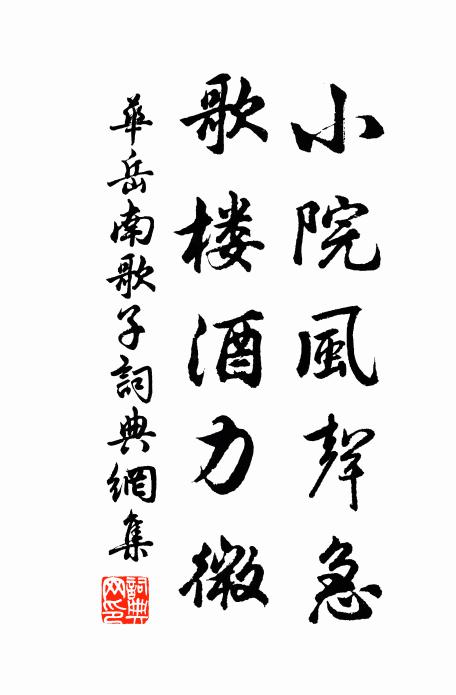 小院風聲急
歌楼酒力微
華岳南歌子詞典網集
詞典網印